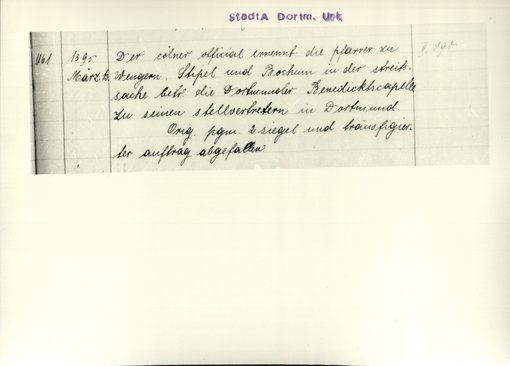 StadtA Dortm. Urk
1161. 1395 Der cölner official ernennt die pfarrer zu
März 13. Wengern, Stipel und Bochum in der streit-
sache betr. die Dortmunder Benedicktscapelle
zu seinen stellvertretern in Dortmund
Orig. pgm. 2 siegel und transfigier-
ter auftrag abgefallen